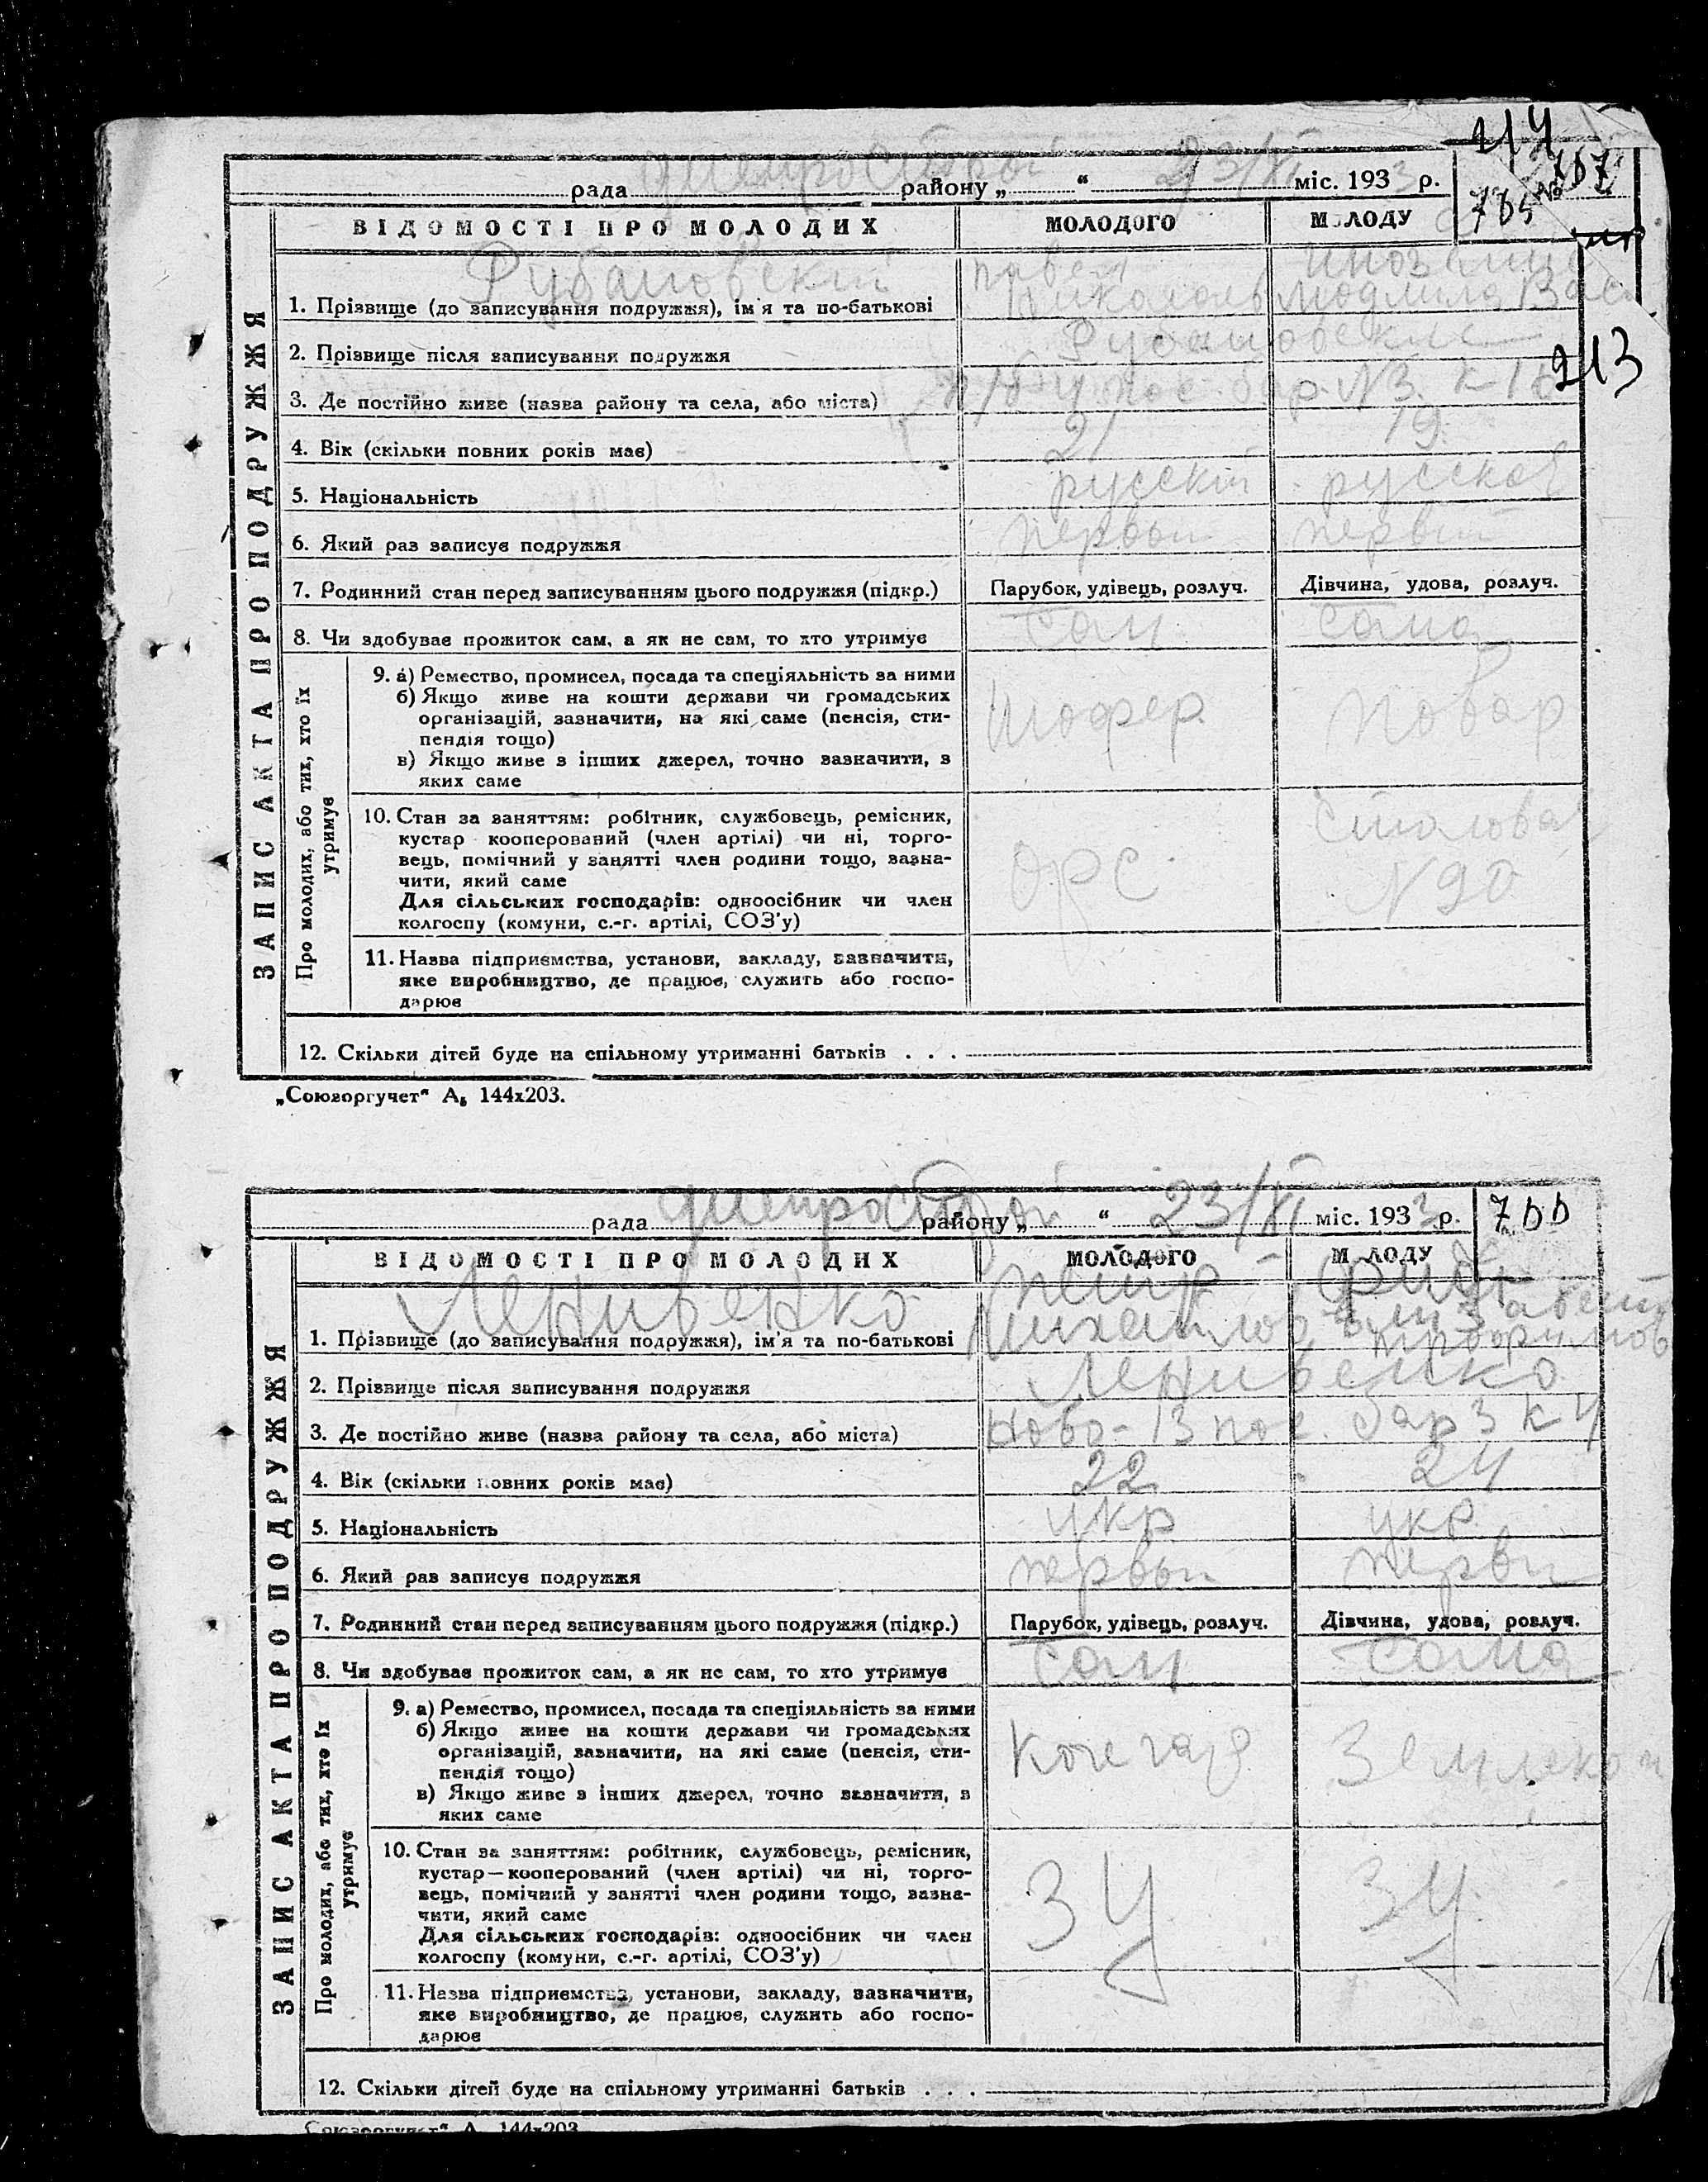 214
рада Днепрострой району „ “ 23/VI міс. 1933 р.
785 № 787
ВІДОМОСТІ ПРО МОЛОДИХ МОЛОДОГО МОЛОДУ
ЗАПИС АКТА ПРО ПОДРУЖЖЯ
Рубановский Павел
1. Прізвище (до записування подружжя), ім'я та по-батькові Людмила Вас
2. Прізвище після записування подружжя
213
3. Де постійно живе (назва району та села, або міста) пос. бар. N3 к-16
4. Вік (скільки повних років має) 21 19
5. Національність русский русская
6. Який раз записує подружжя первый первый
7. Родинний стан перед записуванням цього подружжя (підкр.) Парубок, удівець, розлуч. Дівчина, удова, розлуч.
8. Чи здобуває прожиток сам, а як не сам, то хто утримує сам сама
Про молодих, або тих, хто їх утримує
9. а) Ремество, промисел, посада та спеціяльність за ними
б) Якщо живе на кошти держави чи громадських
організацій, зазначити, на які саме (пенсія, сти-
пендія тощо) шофер повар
в) Якщо живе з інших джерел, точно зазначити, з
яких саме
10. Стан за заняттям: робітник, службовець, ремісник,
кустар кооперований (член артілі) чи ні, торго-
вець, помічний у занятті член родини тощо, зазна-
чити, який саме ОРС столовая N 90
Для сільських господарів: одноосібник чи член
колгоспу (комуни, с.-г. артілі, СОЗ'у)
11. Назва підприємства, установи, закладу, зазначити,
яке виробництво, де працює, служить або госпо-
дарює
12. Скільки дітей буде на спільному утриманні батьків . . .
„Союзоргучет“ А₅ 144х203.
рада Днепрострой району „ “ 23/VI міс. 1933 р.
788
ВІДОМОСТІ ПРО МОЛОДИХ МОЛОДОГО МОЛОДУ
ЗАПИС АКТА ПРО ПОДРУЖЖЯ
Ленивенко Петр
1. Прізвище (до записування подружжя), ім'я та по-батькові Михайлов
2. Прізвище після записування подружжя Ленивенко
3. Де постійно живе (назва району та села, або міста) Ново-13 пос. бар 3 к 4
4. Вік (скільки повних років має) 22 24
5. Національність укр укр
6. Який раз записує подружжя первы первы
7. Родинний стан перед записуванням цього подружжя (підкр.) Парубок, удівець, розлуч. Дівчина, удова, розлуч.
8. Чи здобуває прожиток сам, а як не сам, то хто утримує сам сама
Про молодих, або тих, хто їх утримує
9. а) Ремество, промисел, посада та спеціяльність за ними
б) Якщо живе на кошти держави чи громадських
організацій, зазначити, на які саме (пенсія, сти-
пендія тощо) Кочегар Землекоп
в) Якщо живе з інших джерел, точно зазначити, з
яких саме
10. Стан за заняттям: робітник, службовець, ремісник,
кустар—кооперований (член артілі) чи ні, торго-
вець, помічний у занятті член родини тощо, зазна-
чити, який саме ЗУ ЗУ
Для сільських господарів: одноосібник чи член
колгоспу (комуни, с.-г. артілі, СОЗ'у)
11. Назва підприємства, установи, закладу, зазначити,
яке виробництво, де працює, служить або госпо-
дарює
12. Скільки дітей буде на спільному утриманні батьків . . .
Союзоргучет“ А 144х203